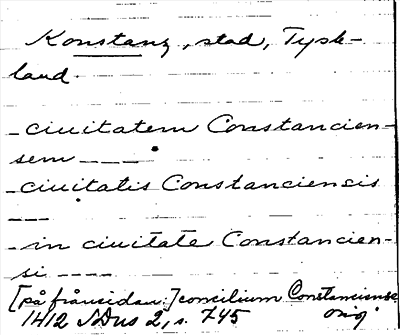 Konstanz, stad, Tysk-
land.
– ciuitatem Constancien-
sem – – – –
– ciuitatis Constanciensis
– – –
– in ciuitate Constancien-
si – – – –
[på frånsidan:] concilium Constanciense
1412 SDns 2, s. 745 orig.